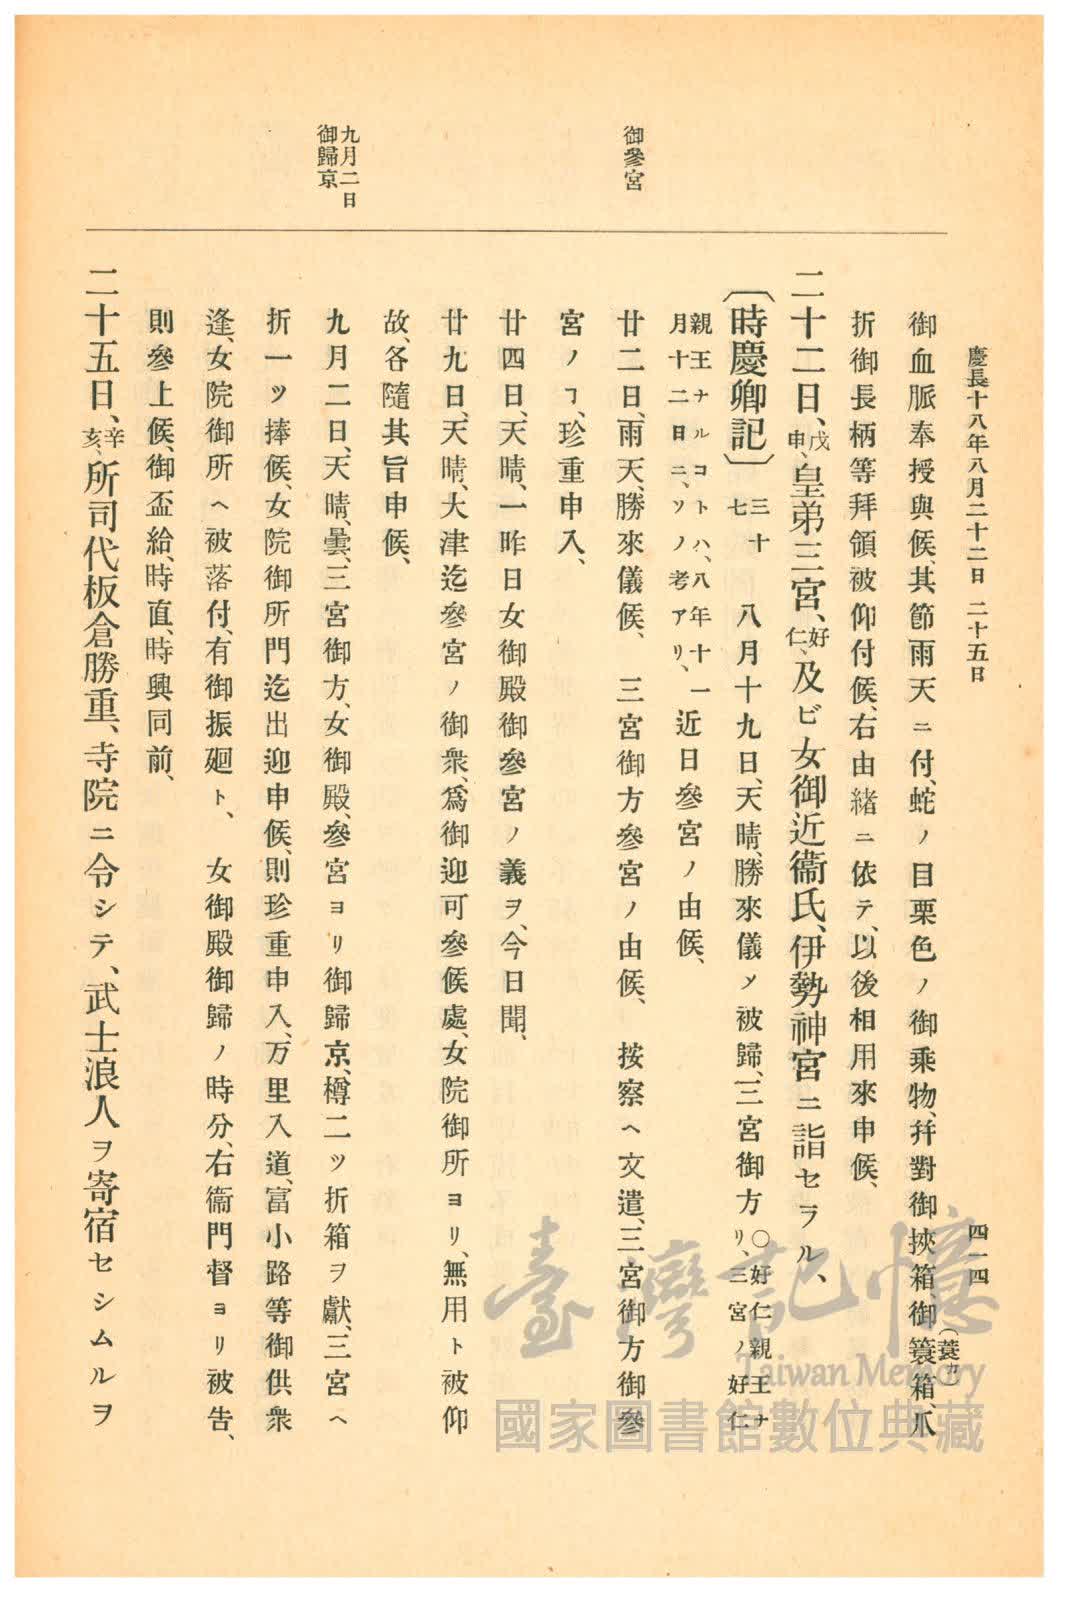 慶長十八年八月二十二日 二十五日 四一四
御血脈奉授與候、其節雨天ニ付、蛇ノ目栗色ノ御乘物、幷對御挾箱御簑箱、爪
(蓑カ)
折御長柄等拜領被仰付候、右由緒ニ依テ、以後相用來申候、
二十二日、戊申、皇弟三宮、好仁、及ビ女御近衞氏、伊勢神宮ニ詣セラル、
御參宮
〔時慶卿記〕 三十七 八月十九日、天晴、勝來儀メ被歸、三宮御方 ○好仁親王ナリ、三宮ノ好仁
親王ナルコトハ、八年十一月十二日ニ、ソノ考アリ、 近日參宮ノ由候、
廿二日、雨天、勝來儀候、 三宮御方參宮ノ由候、 按察ヘ文遣、三宮御方御參
宮ノヿ、珍重申入、
廿四日、天晴、一昨日女御殿御參宮ノ義ヲ、今日聞、
廿九日、天晴、大津迄參宮ノ御衆、爲御迎可參候處、女院御所ヨリ、無用ト被仰
故、各隨其旨申候、
九月二日御歸京
九月二日、天晴、曇、三宮御方、女御殿、參宮ヨリ御歸京、樽二ツ折箱ヲ獻、三宮ヘ
折一ツ捧候、女院御所門迄出迎申候、則珍重申入、万里入道、富小路等御供衆
逢、女院御所ヘ被落付、有御振廻ト、 女御殿御歸ノ時分、右衞門督ヨリ被告、
則參上候、御盃給、時直、時興同前、
二十五日、辛亥、所司代板倉勝重、寺院ニ令シテ、武士浪人ヲ寄宿セシムルヲ
臺灣記憶
Taiwan Memory
國家圖書館數位典藏